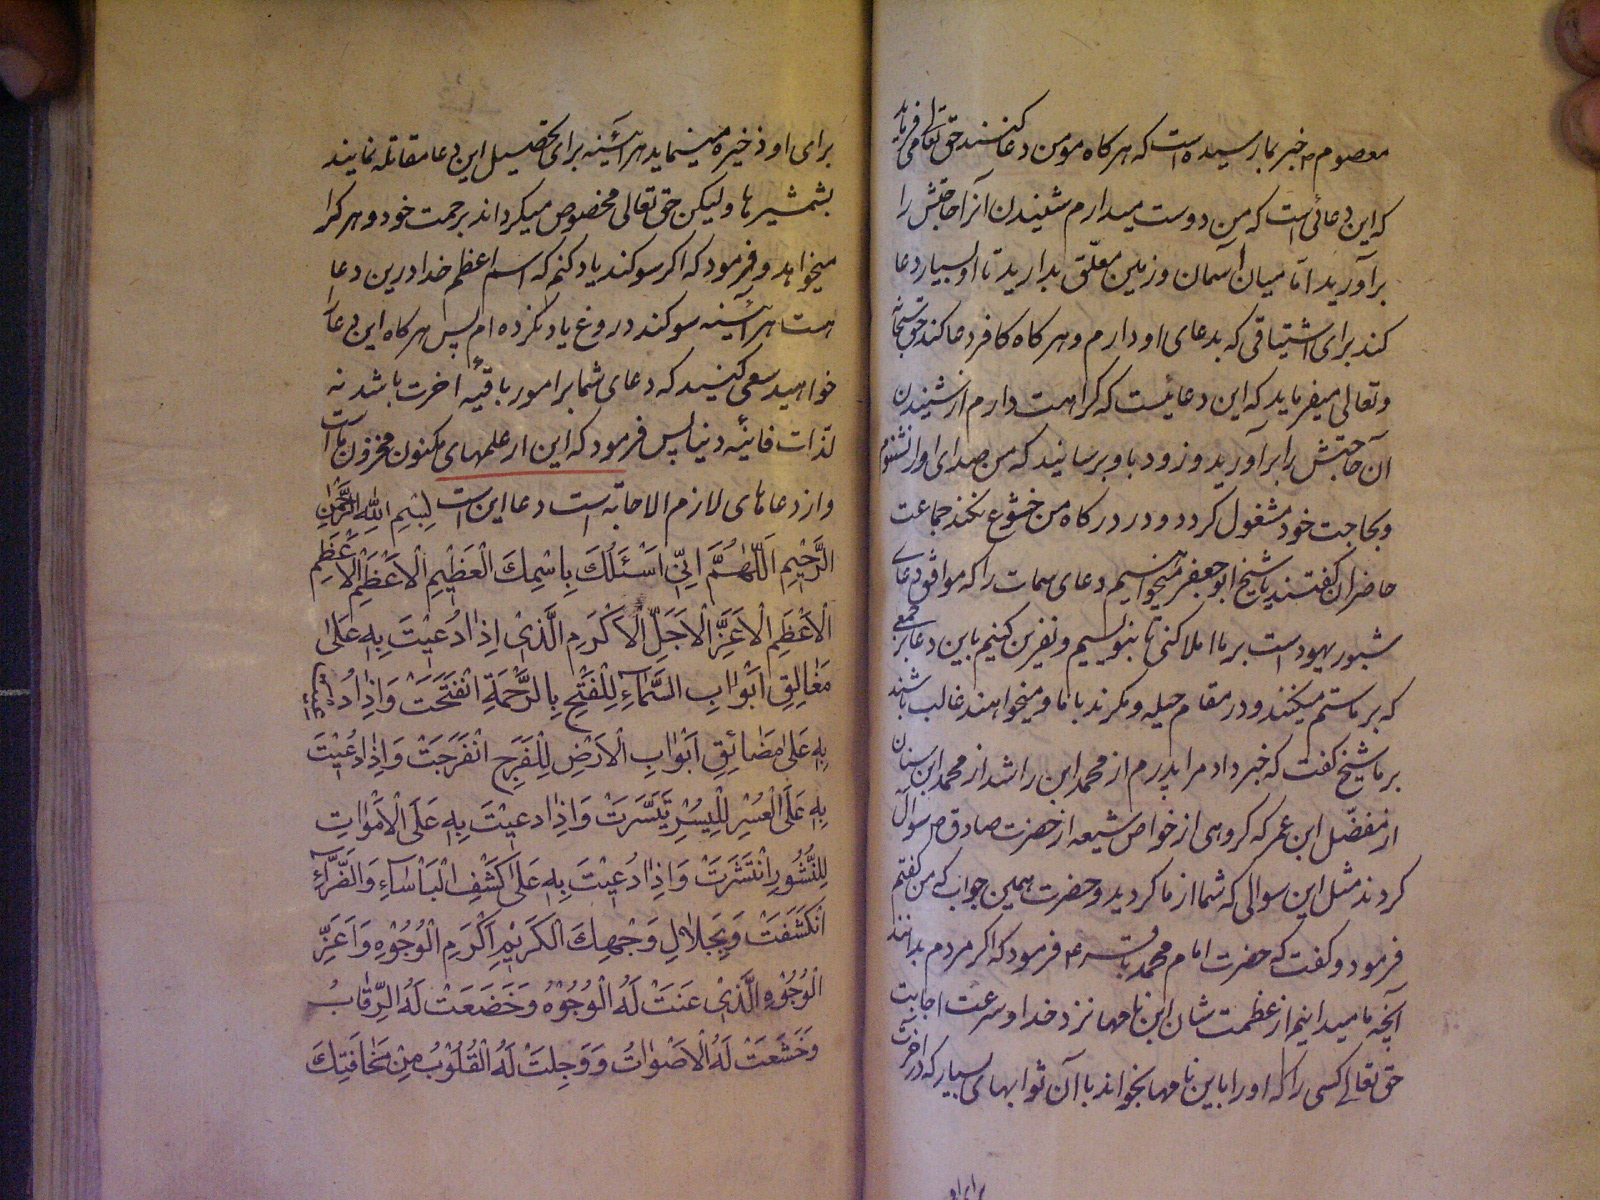 معصوم ع خبر بما رسیده است که هر کاه مومن دعا کند حق تعالی میفرماید
که این دعائی است که من دوست میدارم شنیدن آنرا حاجتش را
برآورید امّا میان آسمان و زمین معلّق بدارید تا او بسیار دعا
کند برای اشتیاقی که بدعای او دارم و هر کاه کافر دعا کند حق سبحانه
و تعالی میفرماید که این دعائیست که کراهت دارم از شنیدن
آن حاجتش را برآورید و زود باو برسانید که من صدای او را نشنوم
و بحاجت خود مشغول کردد و در درکاه من خشوع نکند جماعت
حاضران کفتند یا شیخ ابو جعفر میخواهیم دعای سمات را که موافق دعای
شبور یهود است بر ما املا کنی تا بنویسیم و نفرین کنیم باین دعا بر جمعی
که بر ما ستم میکنند و در مقام حیله و مکرند با ما و میخواهند غالب باشند
بر ما شیخ کفت که خبر داد مرا پدرم از محمد ابن راشد از محمد ابن سنان
از مفضّل ابن عمر که کروهی از خواص شیعه از حضرت صادق ع سوال
کردند مثل این سوالی که شما از ما کردید و حضرت همین جواب که من کفتم
فرمود و کفت که حضرت امام محمد باقر ع فرمود که اکر مردم بدانند
آنچه ما میدانیم از عظمت شان این نامها نزد خدا و سرعت اجابت
حق تعالی کسی را که او را باین نامها بخواند با آن ثوابهای بسیار که در آخرت
برای او
برای او ذخیره مینماید هر آئینه برای تحصیل این دعا مقاتله نمایند
بشمشیرها ولیکن حق تعالی مخصوص میکرداند برحمت خود هر کرا
میخواهد و فرمود که اکر سوکند یاد کنم که اسم اعظم خدا درین دعا
هست هر آئینه سوکند دروغ یاد نکرده ام پس هر کاه این دعا را
خواهید سعی کنید که دعای شما بر امور باقیه اخرت باشد نه
لذّات فانیه دنیا پس فرمود که این از علمهای مکنون مخزون ما است
و از دعاهای لازم الاجابه است دعا این است بِسْمِ اللّٰهِ الرَّحْمٰنِ
الرَّحِیْمِ اَللّٰهُمَّ اِنِّیْ اَسْئَلُكَ بِاسْمِكَ الْعَظِیْمِ الْاَعْظَمِ الْاَعْظَمِ
الْاَعْظَمِ الْاَعَزِّ الْاَجَلِّ الْاَكْرَمِ الَّذِیْ اِذٰا دُعِیْتَ بِهِ عَلیٰ
مَغٰالِقِ اَبْوٰابِ السَّمٰآءِ لِلْفَتْحِ بِالرَّحْمَةِ انْفَتَحَتْ وَاِذٰا دُعِیْتَ
بِهِ عَلیٰ مَضٰائِقِ اَبْوٰابِ الْاَرْضِ لِلْفَرَجِ انْفَرَجَتْ وَاِذٰا دُعِیْتَ
بِهِ عَلَی الْعُسْرِ لِلْیُسْرِ تَیَسَّرَتْ وَاِذٰا دعِیْتَ بِهِ عَلَی الْاَمْوٰاتِ
لِلنُّشُوْرِ انْتَشَرَتْ وَاِذٰا دُعِیْتَ بِهِ عَلیٰ كَشْفِ الْبَاْسٰآءِ وَالضَّرّٰآءِ
انْكَشَفَتْ وَبِجَلاٰلِ وَجْهِكَ الْكَرِیْمِ اَكْرَمِ الْوُجُوْهِ وَاَعَزِّ
الْوُجُوْهِ الَّذِیْ عَنَتْ لَهُ الْوُجُوْهُ وَخَضَعَتْ لَهُ الرِّقٰابُ
وَخَشَعَتْ لَهُ الْاَصْوٰاتُ وَوَجِلَتْ لَهُ الْقُلُوْبُ مِنْ مَخٰافَتِكَ